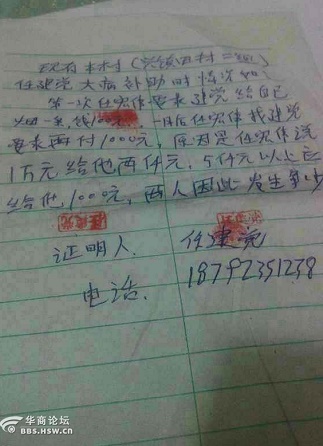 现有本村(兴镇四村二组)
任建党大病补助时情况如
第一次任宏伟要求建党给自己
一条,钱100元 一月后任宏伟找建党
要求再付1000元,原因是任宏伟说
1万元给他两仟元,5仟元以上应
给他1000元,两人因此发生争
证明人 任建党
电话. 18792351238
华商论坛
BBS.HSW.CN